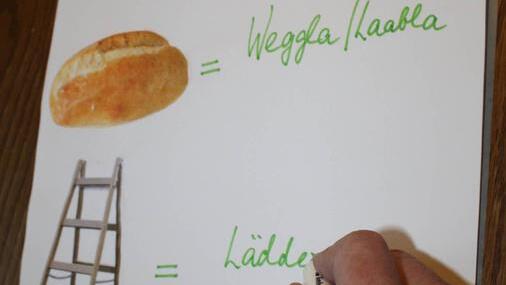 = Weggla/Laabla
= Lädde